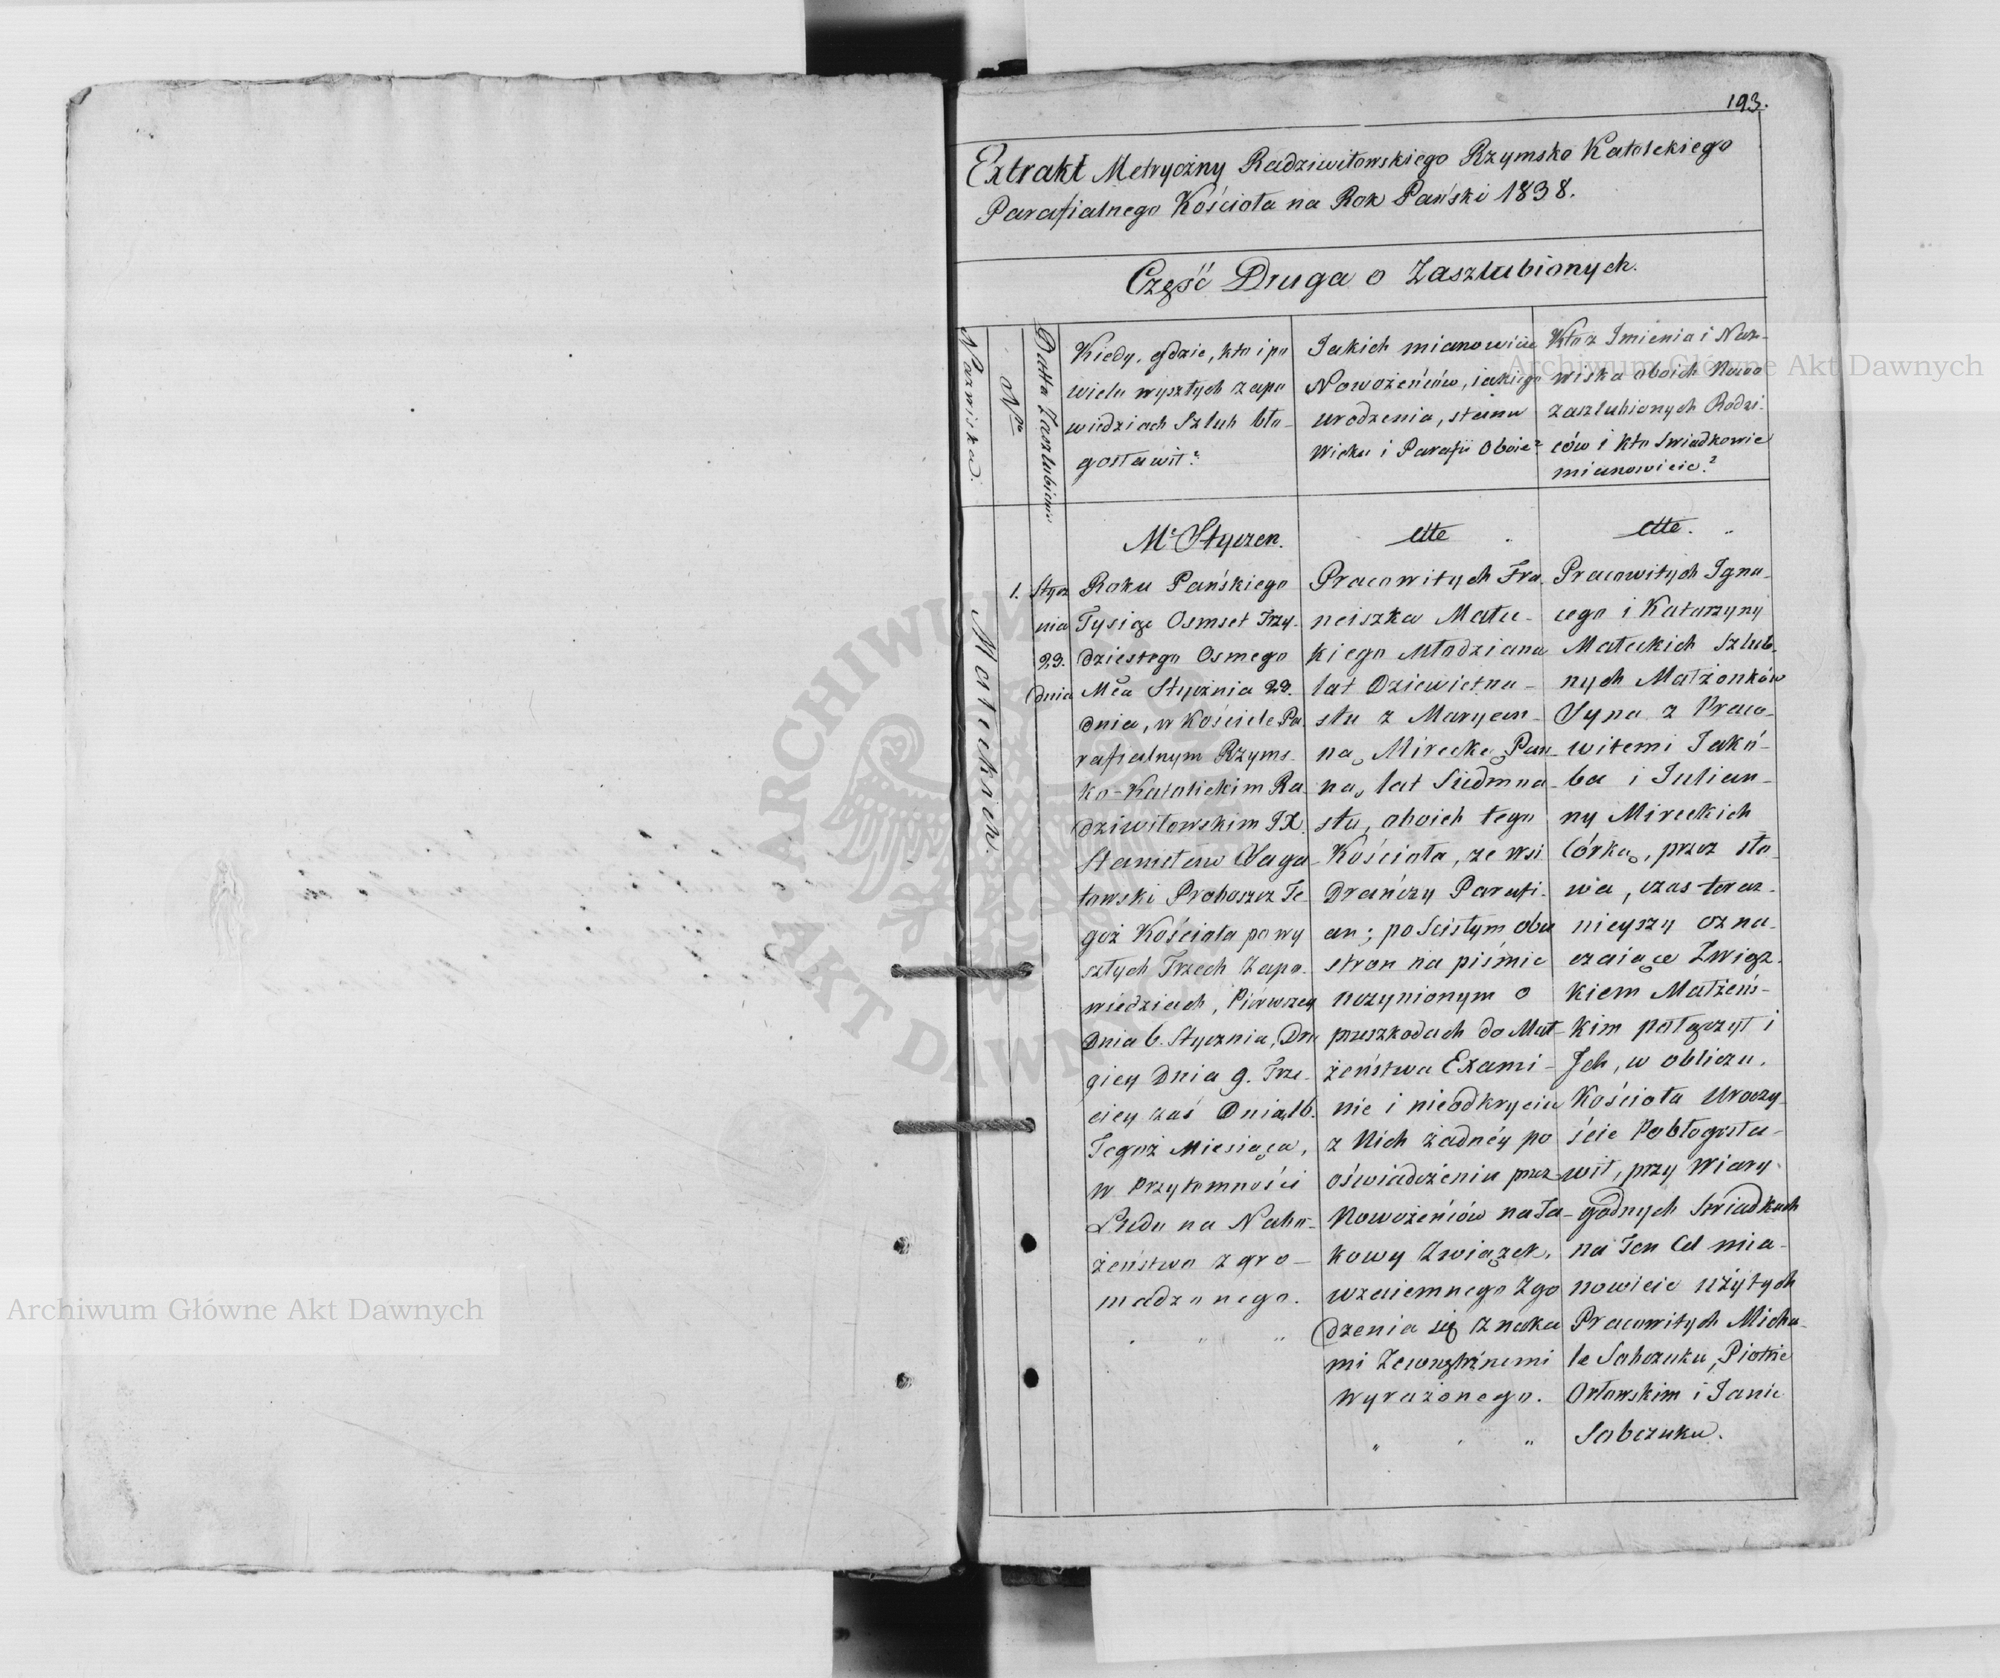 193.
Extrakt Metryczny Radziwiłowskiego Rzymsko Katolickiego
Parafialnego Kościoła na Rok Pański 1838.
Część Druga o Zaszlubionych.
Nazwiska.
Nro
Datta Zaszlubienia
Kiedy, gdzie, kto i po
wielu wyszłych zapo
wiedziach Szlub bło-
gosławił?
Jakich mianowicie
Nowożeńców, iakiego
urodzenia, stanu
Wieku i Parafii Oboie?
Kto z Imienia i Naz-
wiska oboich Nowo
zaszlubionych Rodzi-
ców i kto Swiadkowie
mianowicie?
Mateckich.
1.
Stycz
nia
23.
dnia
Mc Styczen.
Roku Pańskiego
Tysiąc Osmset Trzy-
dziestego Osmego
Mca Stycznia 23.
dnia, w Kościele Pa
rafialnym Rzyms-
ko-Katolickim Ra
dziwiłowskim JX.
Stanisław Saga-
łowski Proboszcz Te-
goż Kościoła po wy
szłych Trzech Zapo-
wiedziach, Pierwszey
Dnia 6. Stycznia, Dru
giey Dnia 9. Trze-
ciey zaś Dnia 16.
Tegoż Miesiąca,
w Przytomności
Ludu na Nabo-
żeństwo zgro-
madzonego.
Pracowitych Fra-
nciszka Matec-
kiego Młodziana
lat Dziewiętna-
stu z Maryan-
ną Mirecką Pan-
ną lat Siedmna-
stu, oboich tego
Kościoła, ze wsi
Drańczy Parafi-
an; po Scisłym obu
stron na piśmie
uczynionym o
przeszkodach do Mał-
żeństwa Exami-
nie i nieodkryciu
z Nich żadnéy po
oświadczeniu przez
Nowożeńców na Ta-
kowy Związek,
wzaiemnego Zgo
dzenia się znaka
mi Zewnętrznemi
wyrażonego.
Pracowitych Igna-
cego i Katarzyny
Mateckich Szlub-
nych Małżonków
Syna z Praco-
witemi Jakó-
ba i Julian-
ny Mireckich
Córką, przez sło-
wa, czas teraz-
nieyszy ozna-
czaiące Związ-
kiem Małżeńs-
kim połączył i
Ich, w obliczu
Kościoła Uroczy-
ście Pobłogosła-
wił, przy Wiary-
godnych Swiadkach
na Ten Cel mia-
nowicie użytych
Pracowitych Micha-
le Sobczuku, Piotrze
Orłowskim i Janie
Sobczuku.
Archiwum Główne Akt Dawnych
Archiwum Główne Akt Dawnych
ARCHIWUM
AKT DAWNYCH